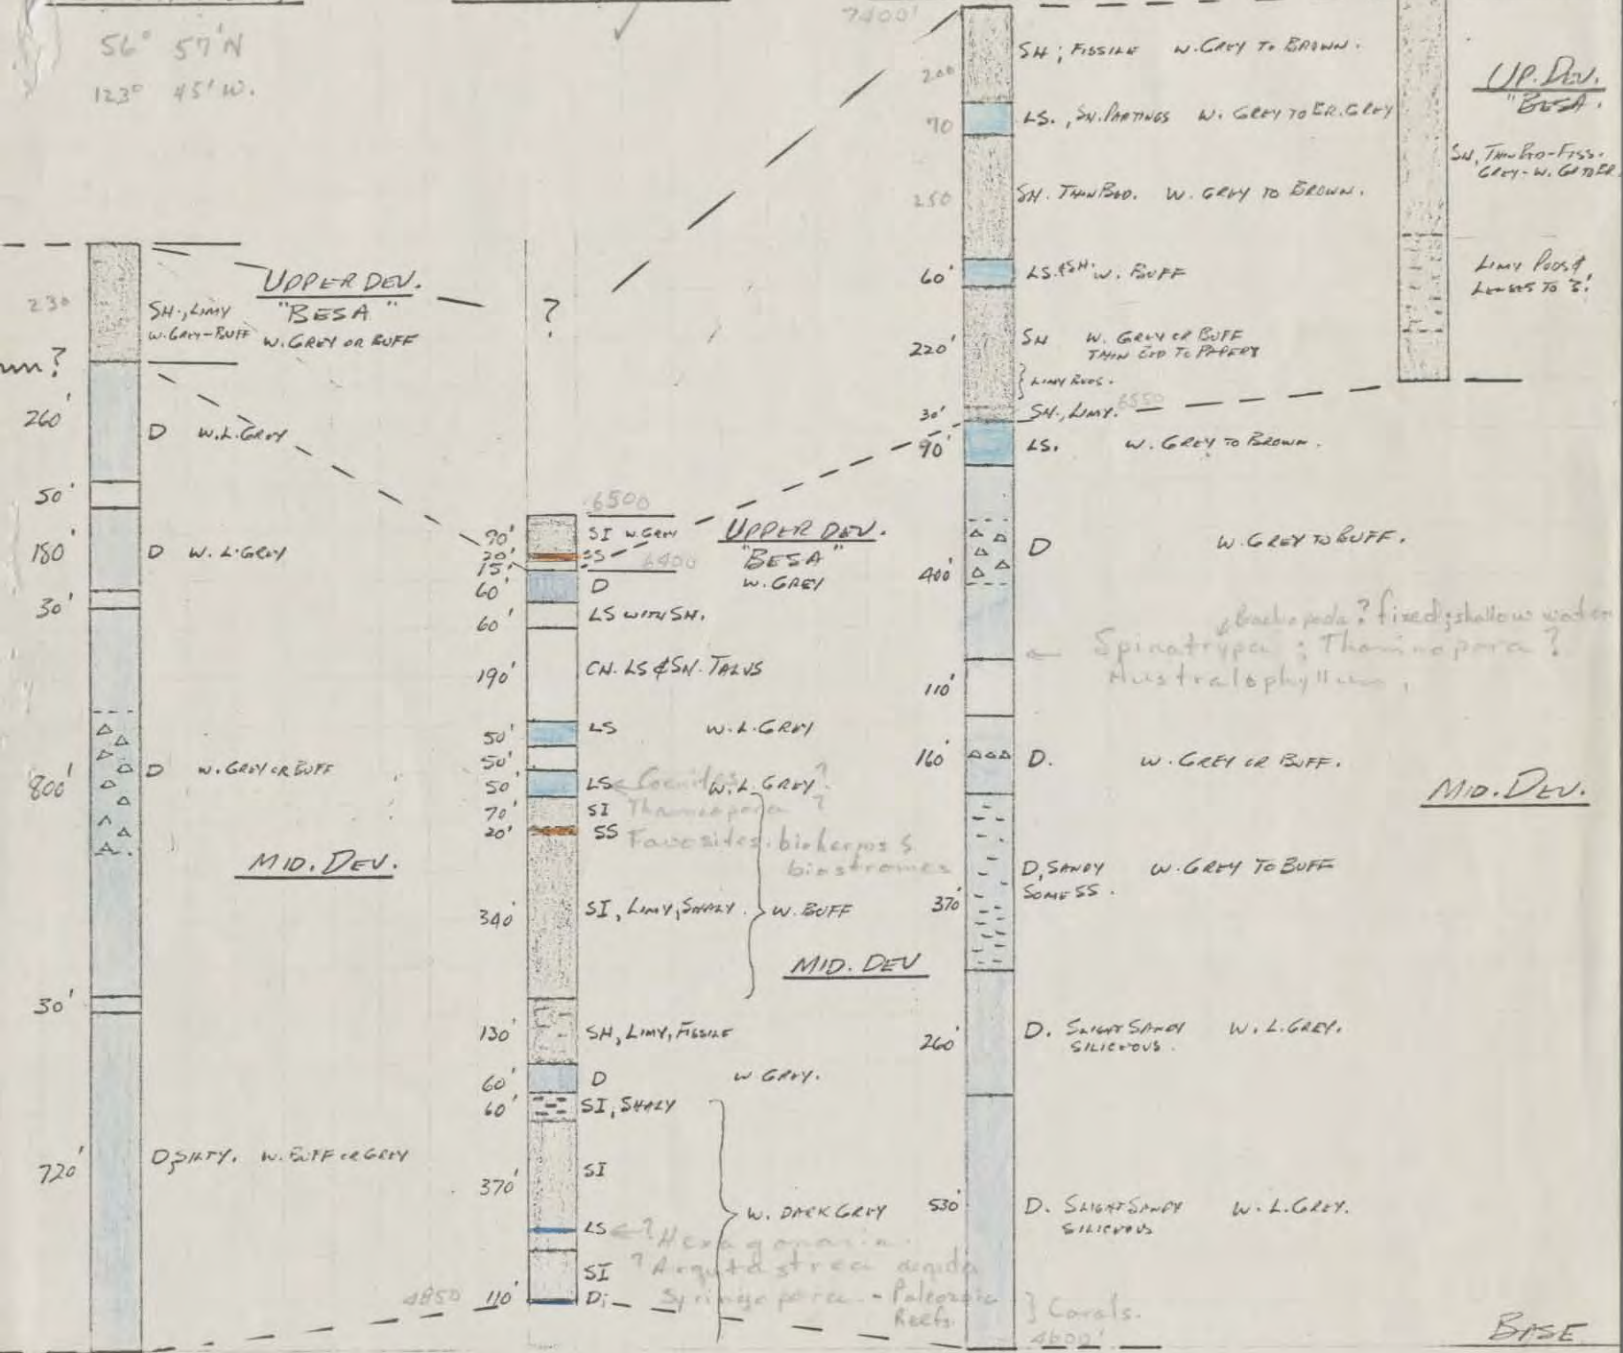 56° 57'N
123° 45' W.
230
SH., LIMY
W. GREY-BUFF
UPPER DEV.
"BESA"
W. GREY OR BUFF
?
260'
D W.L. GREY
50'
180'
D W. L. GREY
30'
800'
D W. GREY OR BUFF
MID. DEV.
30'
720'
D, SILTY. W. BUFF OR GREY
?
6500
90'
SI W. GREY
20'
SS
15'
6400
UPPER DEV.
"BESA"
W. GREY
60'
D
60'
LS WITH SH.
190'
CH. LS & SH. TALUS
50'
LS W.L. GREY
50'
50'
LS W.L. GREY ?
70'
SI Thamnopora ?
20'
SS Favosites. bioherms &
biostromes
340'
SI, LIMY, SHALY. W. BUFF
MID. DEV
130'
SH, LIMY, FISSILE
60'
D W GREY.
60'
SI, SHALY
370'
SI
W. DARK GREY
LS ? Hexagonaria
SI ?
4850 110'
D; Syringopora - Paleozoic
Reefs
} Corals.
4600'
7400'
200
SH; FISSILE W. GREY TO BROWN.
70
LS., SH. PARTINGS W. GREY TO BR. GREY
250
SH. THIN BED. W. GREY TO BROWN.
60'
LS. & SH. W. BUFF
220'
SH W. GREY OR BUFF
THIN BED TO PAPERY
} LIMY BEDS.
30'
SH., LIMY. 6550
90'
LS. W. GREY TO BROWN.
400'
D W. GREY TO BUFF.
? fixed; shallow water
Spinatrypa ; Thamnopora ?
Australophyllum,
110'
160'
D. W. GREY OR BUFF.
MID. DEV.
370'
D, SANDY W. GREY TO BUFF
SOME SS.
260'
D. SLIGHT SANDY W. L. GREY.
SILICEOUS.
530'
D. SLIGHT SANDY W. L. GREY.
SILICEOUS
UP. DEV.
"BESA.
SH, THIN BED-FISS.
GREY-W.
LIMY PODS &
LENSES TO 3'.
BASE